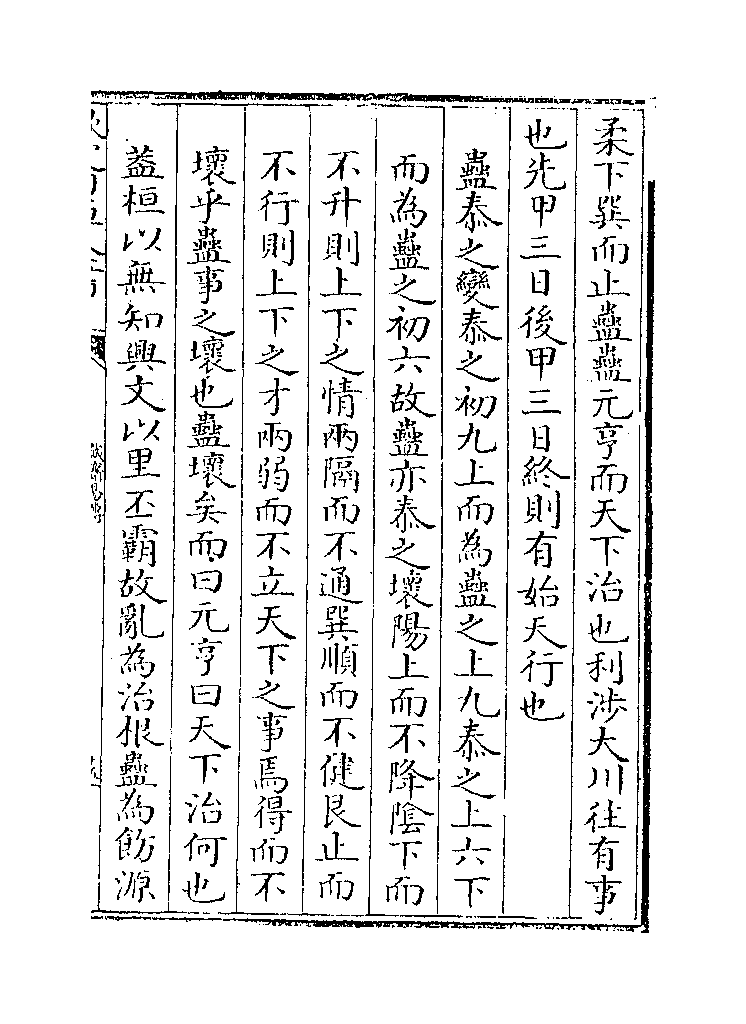 柔下巽而止蠱蠱元亨而天下治也利涉大川往有事
也先甲三日後甲三日終則有始天行也
蠱泰之變泰之初九上而為蠱之上九泰之上六下
而為蠱之初六故蠱亦泰之壞陽上而不降陰下而
不升則上下之情兩隔而不通巽順而不健艮止而
不行則上下之才兩弱而不立天下之事焉得而不
壞乎蠱事之壞也蠱壞矣而曰元亨曰天下治何也
葢桓以無知興文以里丕霸故亂為治根蠱為飭源